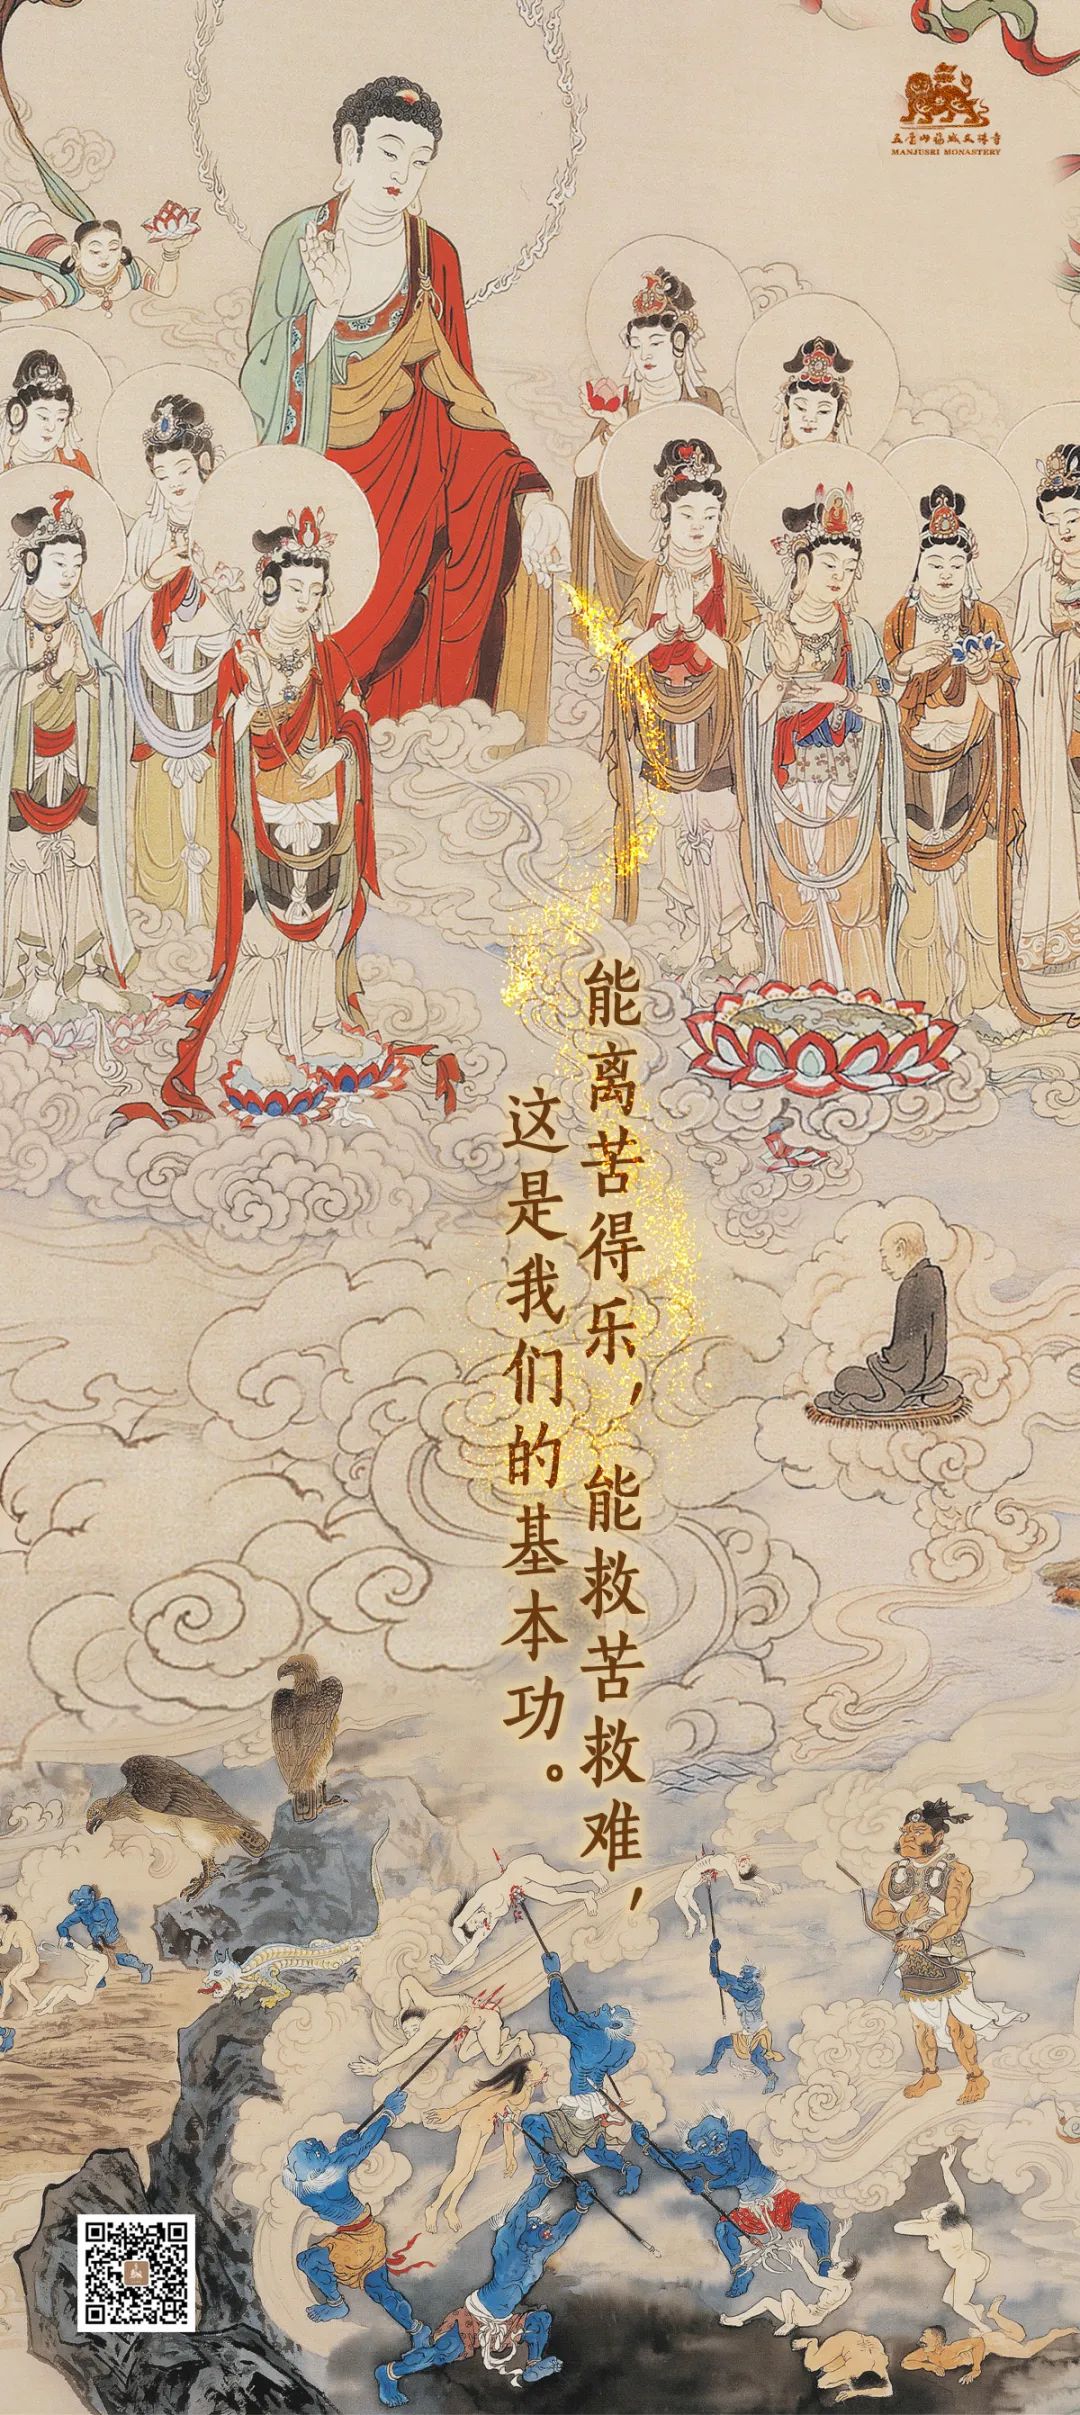 五台山福城文殊寺
MANJUSRI MONASTERY
能离苦得乐，能救苦救难，
这是我们的基本功。